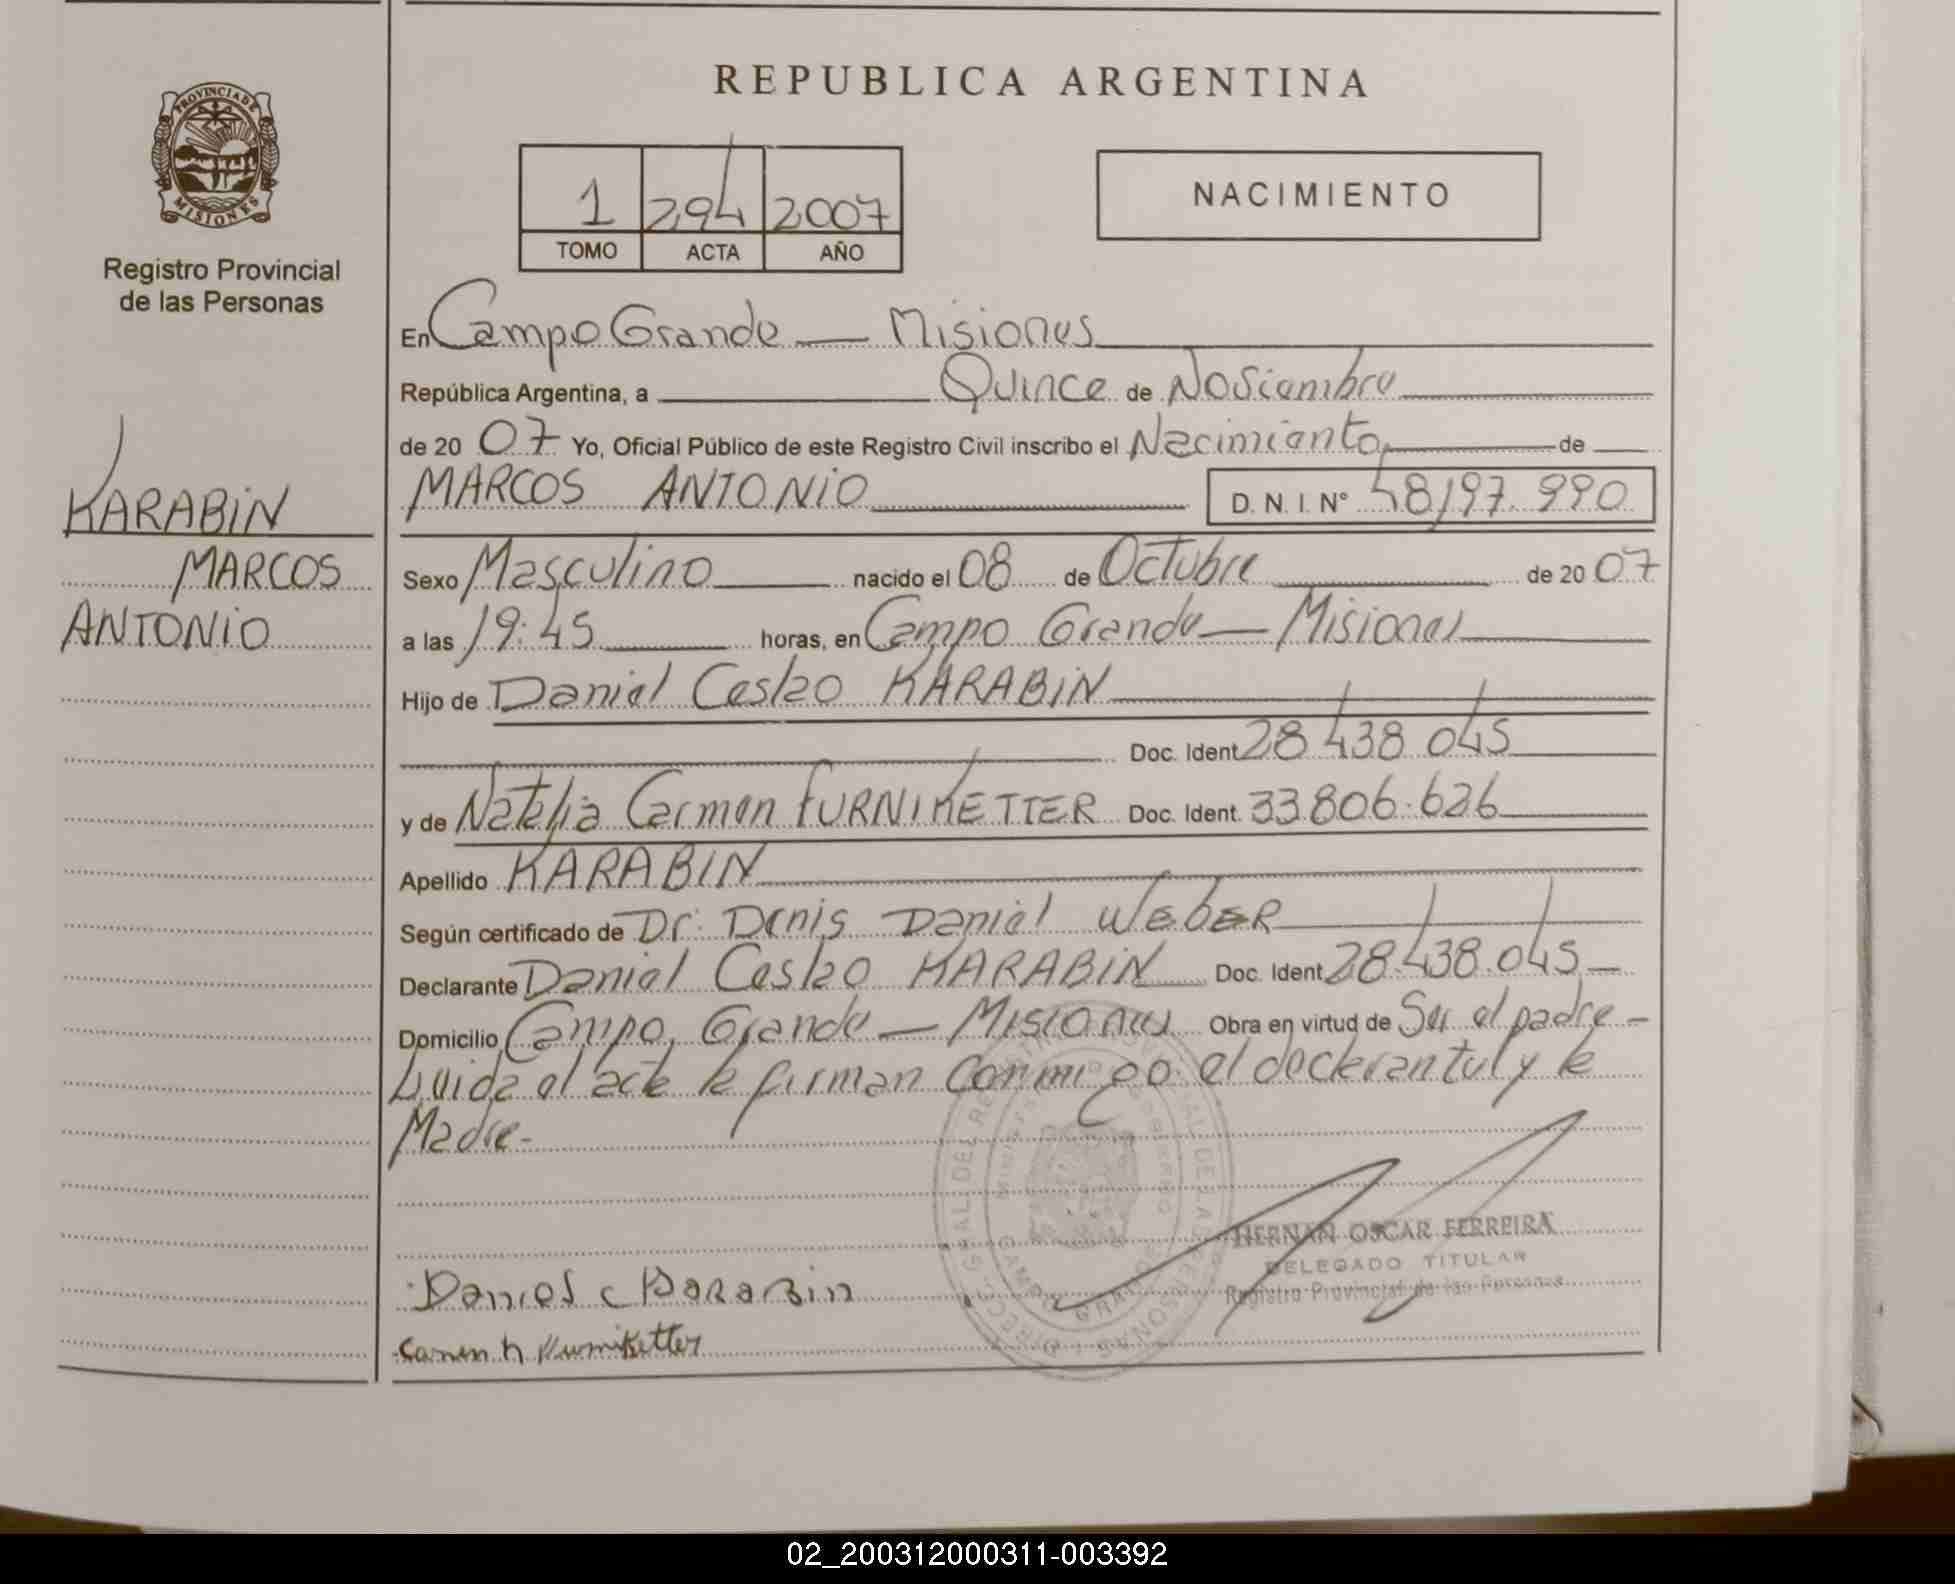 REPUBLICA ARGENTINA
PROVINCIA DE MISIONES
Registro Provincial
de las Personas
1 294 2007
TOMO ACTA AÑO
NACIMIENTO
En Campo Grande — Misiones
República Argentina, a Quince de Noviembre
de 20 07 Yo, Oficial Público de este Registro Civil inscribo el Nacimiento de
MARCOS ANTONIO D. N. I. N° 48197.990
KARABIN
MARCOS
ANTONIO
Sexo Masculino nacido el 08 de Octubre de 20 07
a las 19:45 horas, en Campo Grande — Misiones
Hijo de Daniel Ceslao KARABIN
Doc. Ident. 28.438.045
y de Natalia Carmen FURNIKETTER Doc. Ident. 33.806.626
Apellido KARABIN
Según certificado de Dr. Denis Daniel WEBER
Declarante Daniel Ceslao KARABIN Doc. Ident. 28.438.045
Domicilio Campo Grande — Misiones Obra en virtud de Ser el padre -
Leida el acta la firman conmigo el declarante y la
Madre.-
HERNAN OSCAR FERREIRA
DELEGADO TITULAR
Registro Provincial de las Personas
CAMPO GRANDE
Daniel C Karabin
02_200312000311-003392